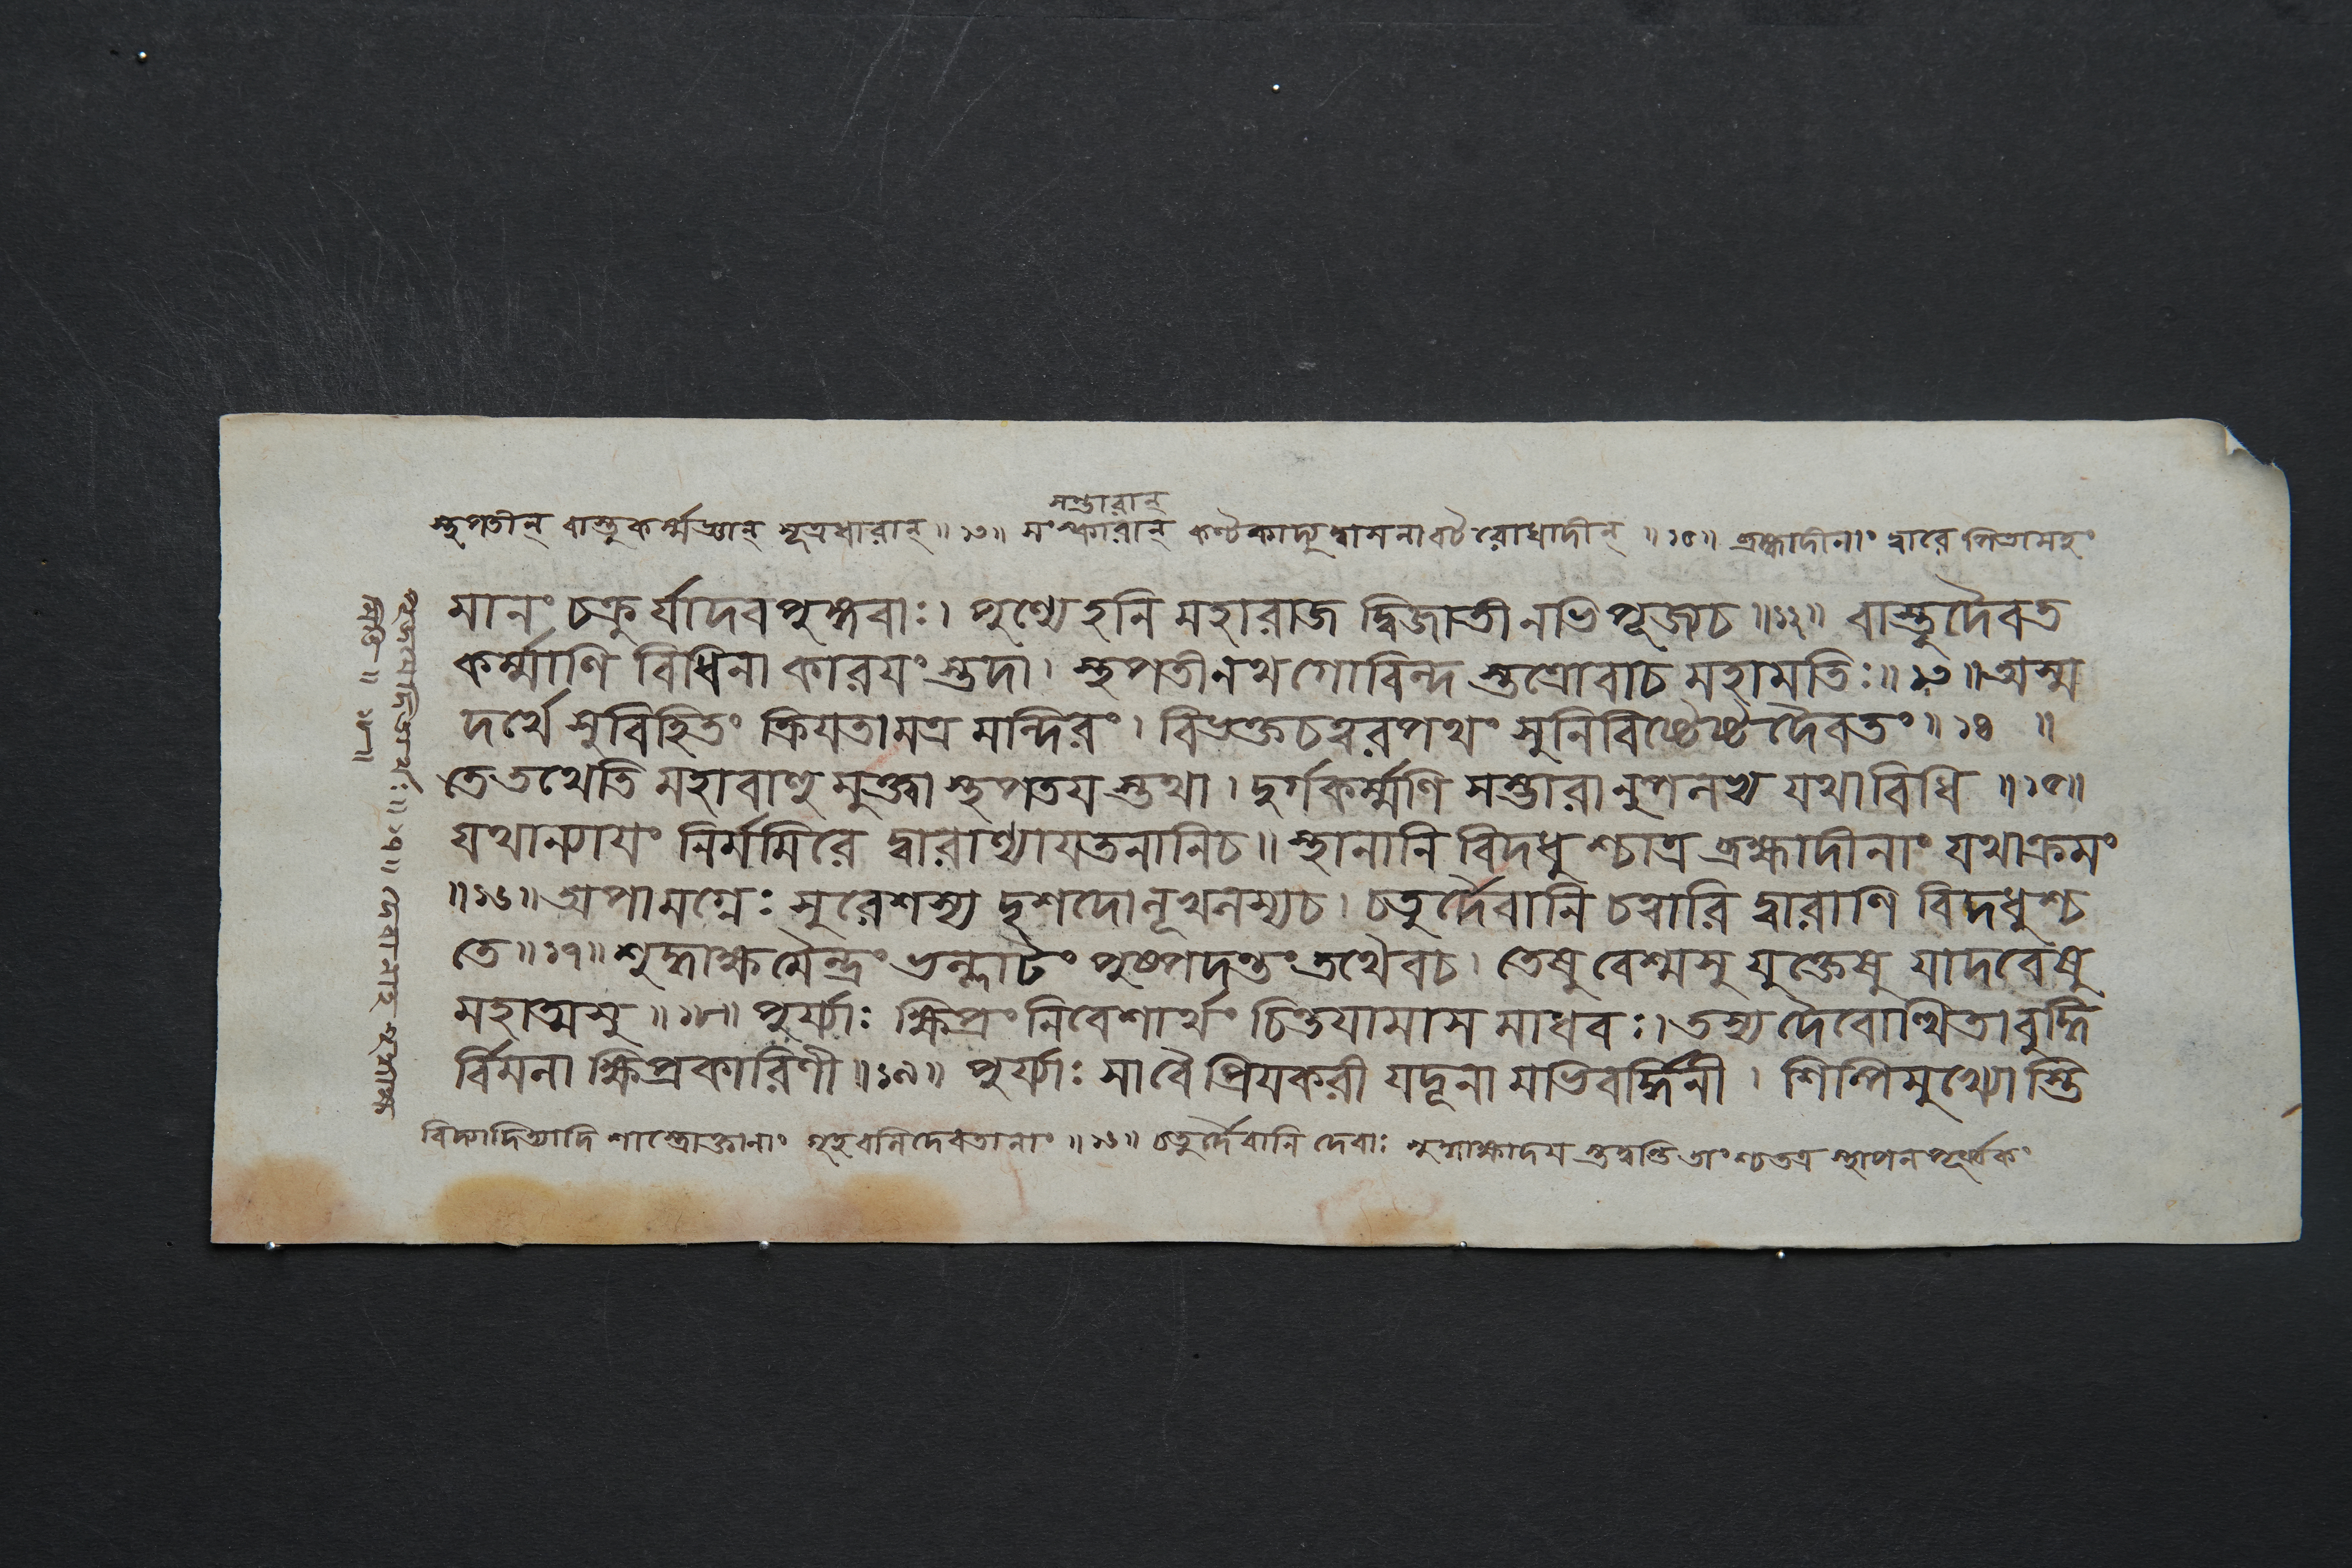 সম্ভারান্
স্থপতীন্ বাস্তুকর্ম্মজ্ঞান্ সূত্রধারান্ ॥১৩॥ সংস্কারান্ কণ্টকাদ্যুদ্বাসনাবটরোধাদীন্ ॥১৫॥ ব্রহ্মাদীনাং দ্বারে
মানং চক্রুর্যাদবপুঙ্গবাঃ। পুণ্যেহনি মহারাজ দ্বিজাতীনভিপূজ্যচ ॥১২॥ বাস্তুদৈবত
কর্ম্মাণি বিধিনা কারযংস্তদা। স্থপতীনথগোবিন্দ স্তত্রোবাচ মহামতিঃ ॥১৩॥ অস্ম
দর্থে সুবিহিতং ক্রিযতামত্র মন্দিরং। বিভক্তচত্বরপথং সুনিবিষ্টেষ্টদৈবতং ॥১৪॥
তেতথেতি মহাবাহু মুক্ত্বা স্থপতযস্তথা। দুর্গকর্ম্মণি সম্ভারানুপলভ্য যথাবিধি ॥১৫॥
যথান্যাযং নির্ম্মমিরে দ্বারাণ্যাযতনানিচ॥ স্থানানি বিদধুশ্চাত্র ব্রহ্মাদীনাং যথাক্রমং
॥১৬॥ অপামগ্নেঃ সুরেশস্য দৃশদোলূখলস্যচ। চতুর্দৈবানি চত্বারি দ্বারাণি বিদধুশ্চ
তে ॥১৭॥ শুদ্ধাক্ষমৈন্দ্রং ভল্লাটং পুষ্পদন্তং তথৈবচ। তেষু বেশ্মসু যুক্তেষু যাদবেষু
মহাত্মসু ॥১৮॥ পুর্য্যাঃ ক্ষিপ্রং নিবেশার্থং চিন্তযামাস মাধবঃ। তস্য দৈবোত্থিতা বুদ্ধি
র্বিমলা ক্ষিপ্রকারিণী ॥১৯॥ পুর্য্যাঃ সাবৈ প্রিযকরী যদূনামভিবর্দ্ধিনী। শিল্পিমুখ্যোস্তি
দিত্যাদি শাস্ত্রোক্তানাং গৃহবলিদেবতানাং ॥১৬॥ চতুর্দৈবানি দেবাঃ শুদ্ধাক্ষাদয স্থাপনপূর্ব্বকং
॥১৭॥
॥১৮॥